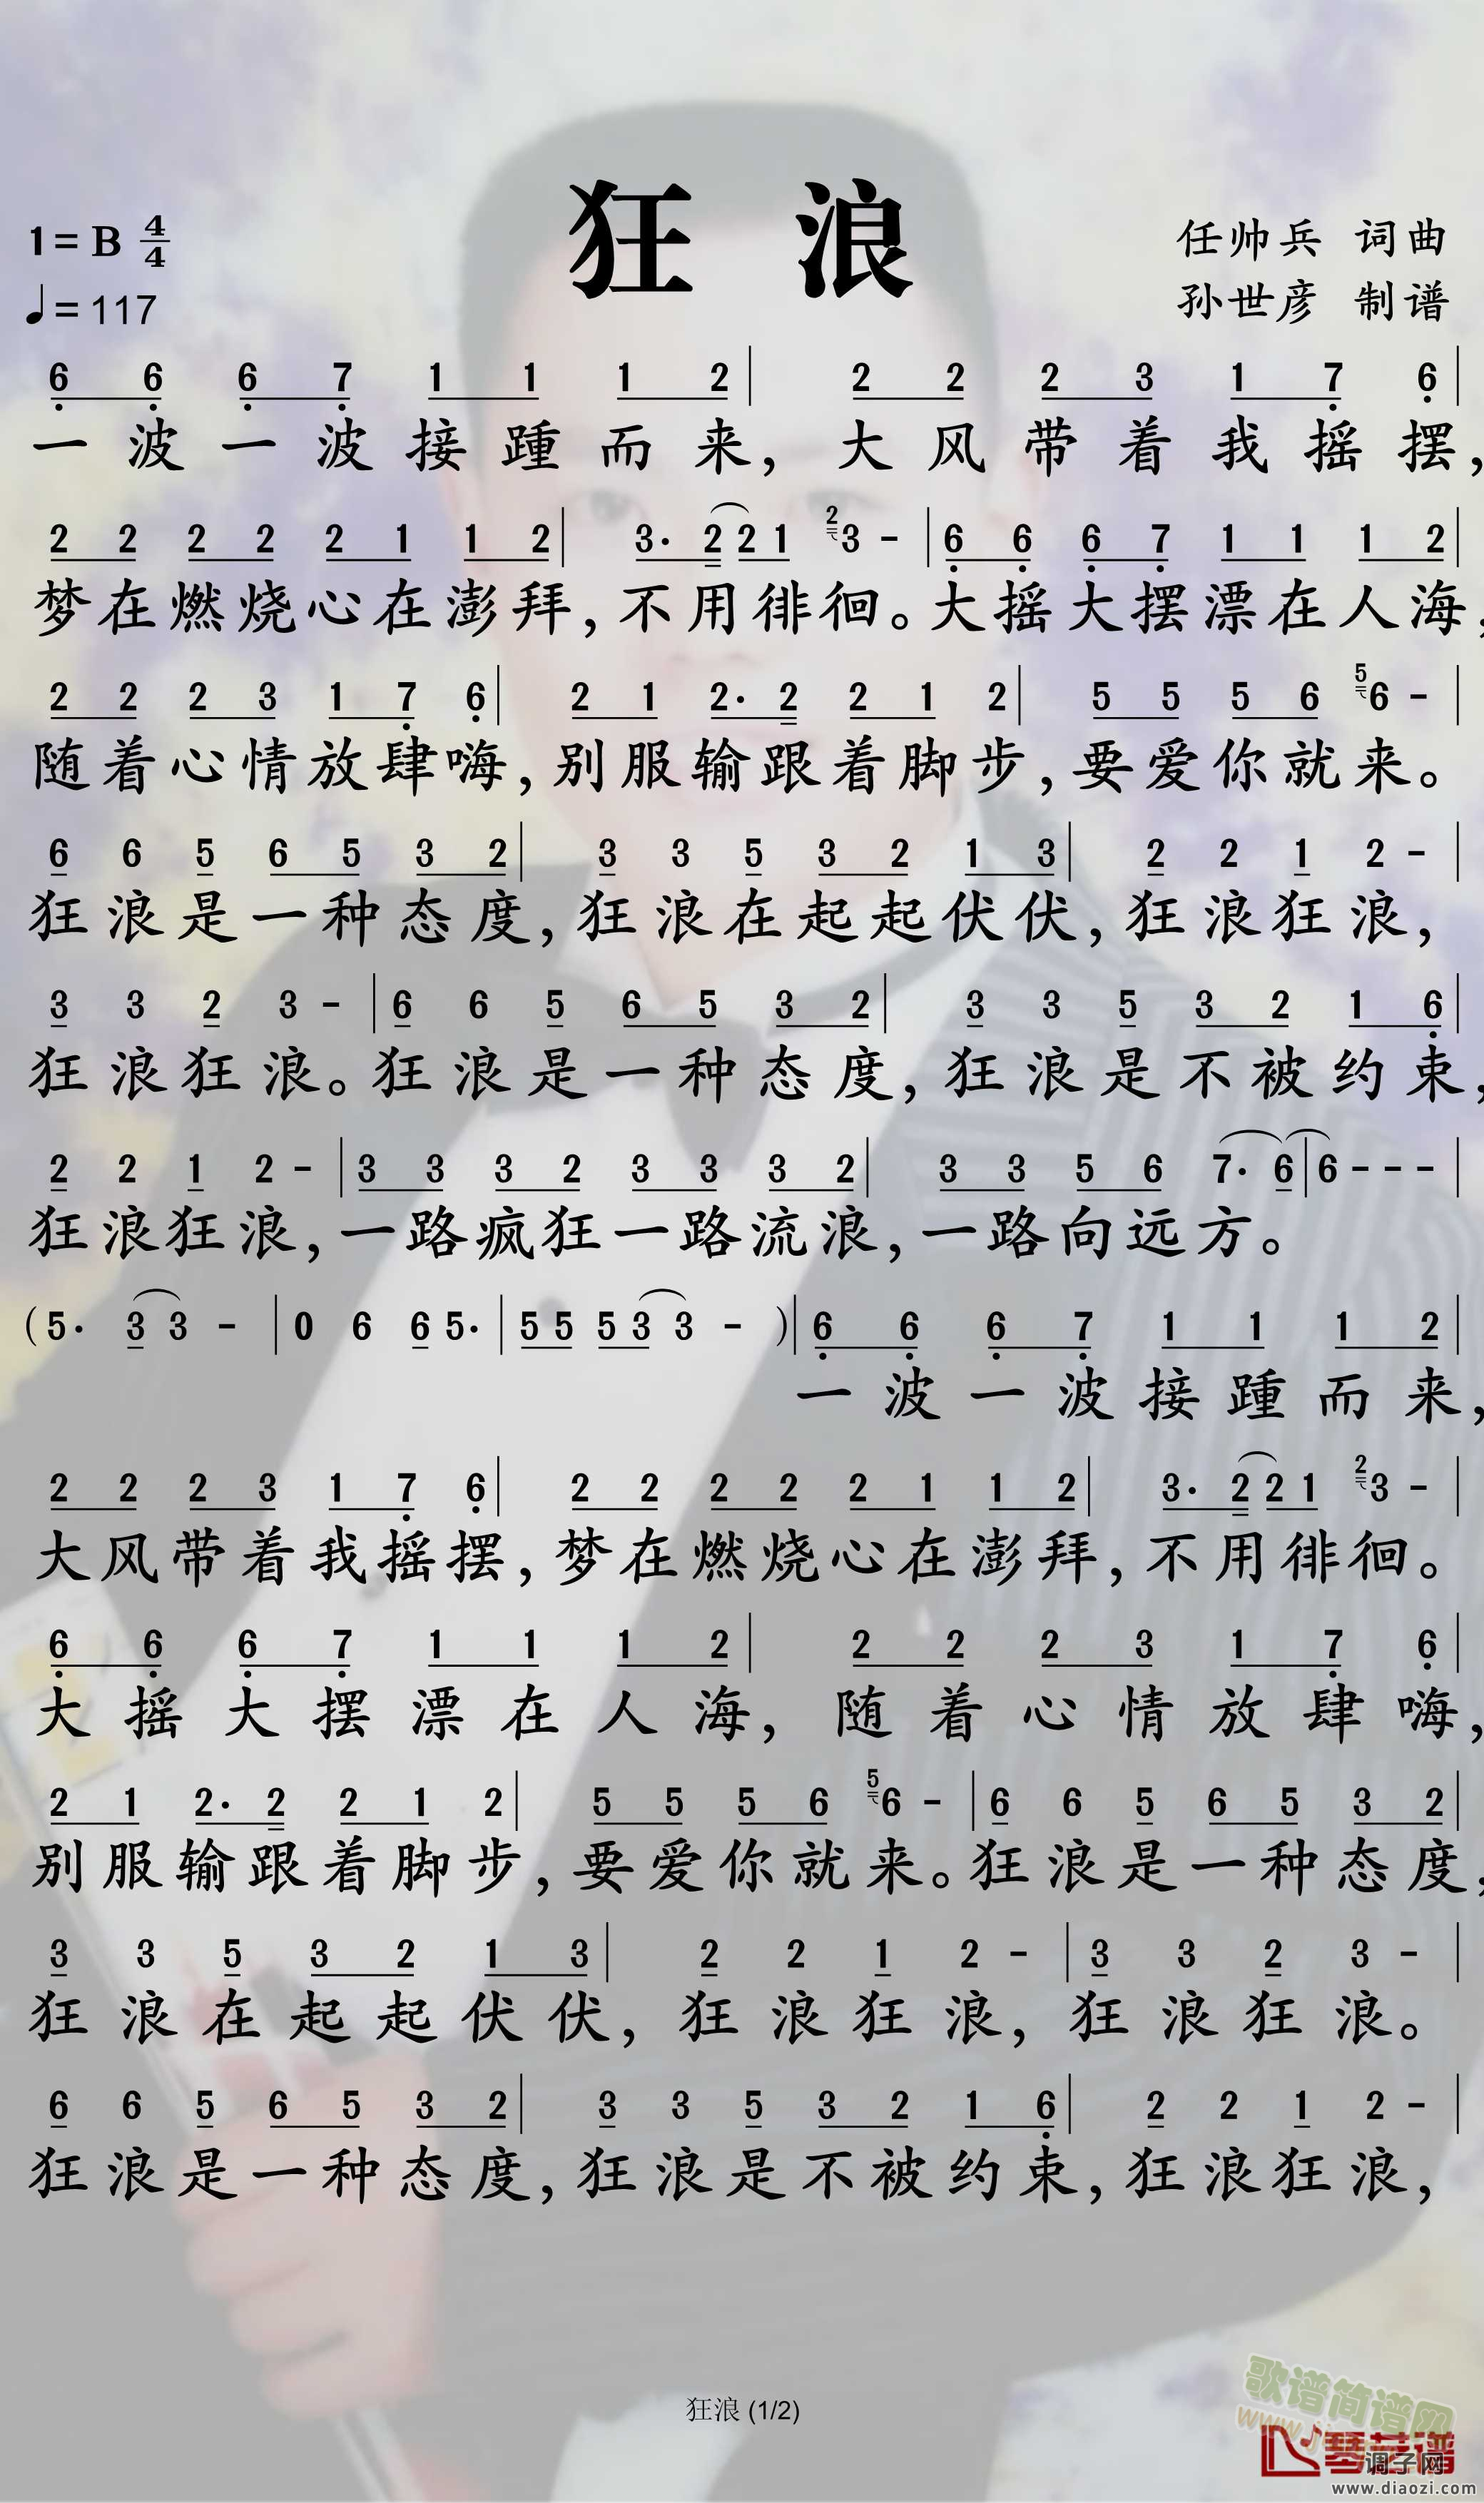 狂 浪
1=B 4/4
♩=117
任帅兵 词曲
孙世彦 制谱
6 6 6 7 1 1 1 2 | 2 2 2 3 1 7 6 |
一波一波接踵而来,大风带着我摇摆,
2 2 2 2 2 1 1 2 | 3· 2 2 1 2 3 - | 6 6 6 7 1 1 1 2 |
梦在燃烧心在澎拜,不用徘徊。大摇大摆漂在人海,
2 2 2 3 1 7 6 | 2 1 2· 2 2 1 2 | 5 5 5 6 5 6 - |
随着心情放肆嗨,别服输跟着脚步,要爱你就来。
6 6 5 6 5 3 2 | 3 3 5 3 2 1 3 | 2 2 1 2 - |
狂浪是一种态度,狂浪在起起伏伏,狂浪狂浪,
3 3 2 3 - | 6 6 5 6 5 3 2 | 3 3 5 3 2 1 6 |
狂浪狂浪。狂浪是一种态度,狂浪是不被约束,
2 2 1 2 - | 3 3 3 2 3 3 3 2 | 3 3 5 6 7· 6 | 6 - - - |
狂浪狂浪,一路疯狂一路流浪,一路向远方。
(5· 3 3 - | 0 6 6 5· | 5 5 5 3 3 - )| 6 6 6 7 1 1 1 2 |
一波一波接踵而来,
2 2 2 3 1 7 6 | 2 2 2 2 2 1 1 2 | 3· 2 2 1 2 3 - |
大风带着我摇摆,梦在燃烧心在澎拜,不用徘徊。
6 6 6 7 1 1 1 2 | 2 2 2 3 1 7 6 |
大摇大摆漂在人海,随着心情放肆嗨,
2 1 2· 2 2 1 2 | 5 5 5 6 5 6 - | 6 6 5 6 5 3 2 |
别服输跟着脚步,要爱你就来。狂浪是一种态度,
3 3 5 3 2 1 3 | 2 2 1 2 - | 3 3 2 3 - |
狂浪在起起伏伏,狂浪狂浪,狂浪狂浪。
6 6 5 6 5 3 2 | 3 3 5 3 2 1 6 | 2 2 1 2 - |
狂浪是一种态度,狂浪是不被约束,狂浪狂浪,
狂浪 (1/2)
歌谱简谱网
琴艺谱
调子网
www.diaozi.com